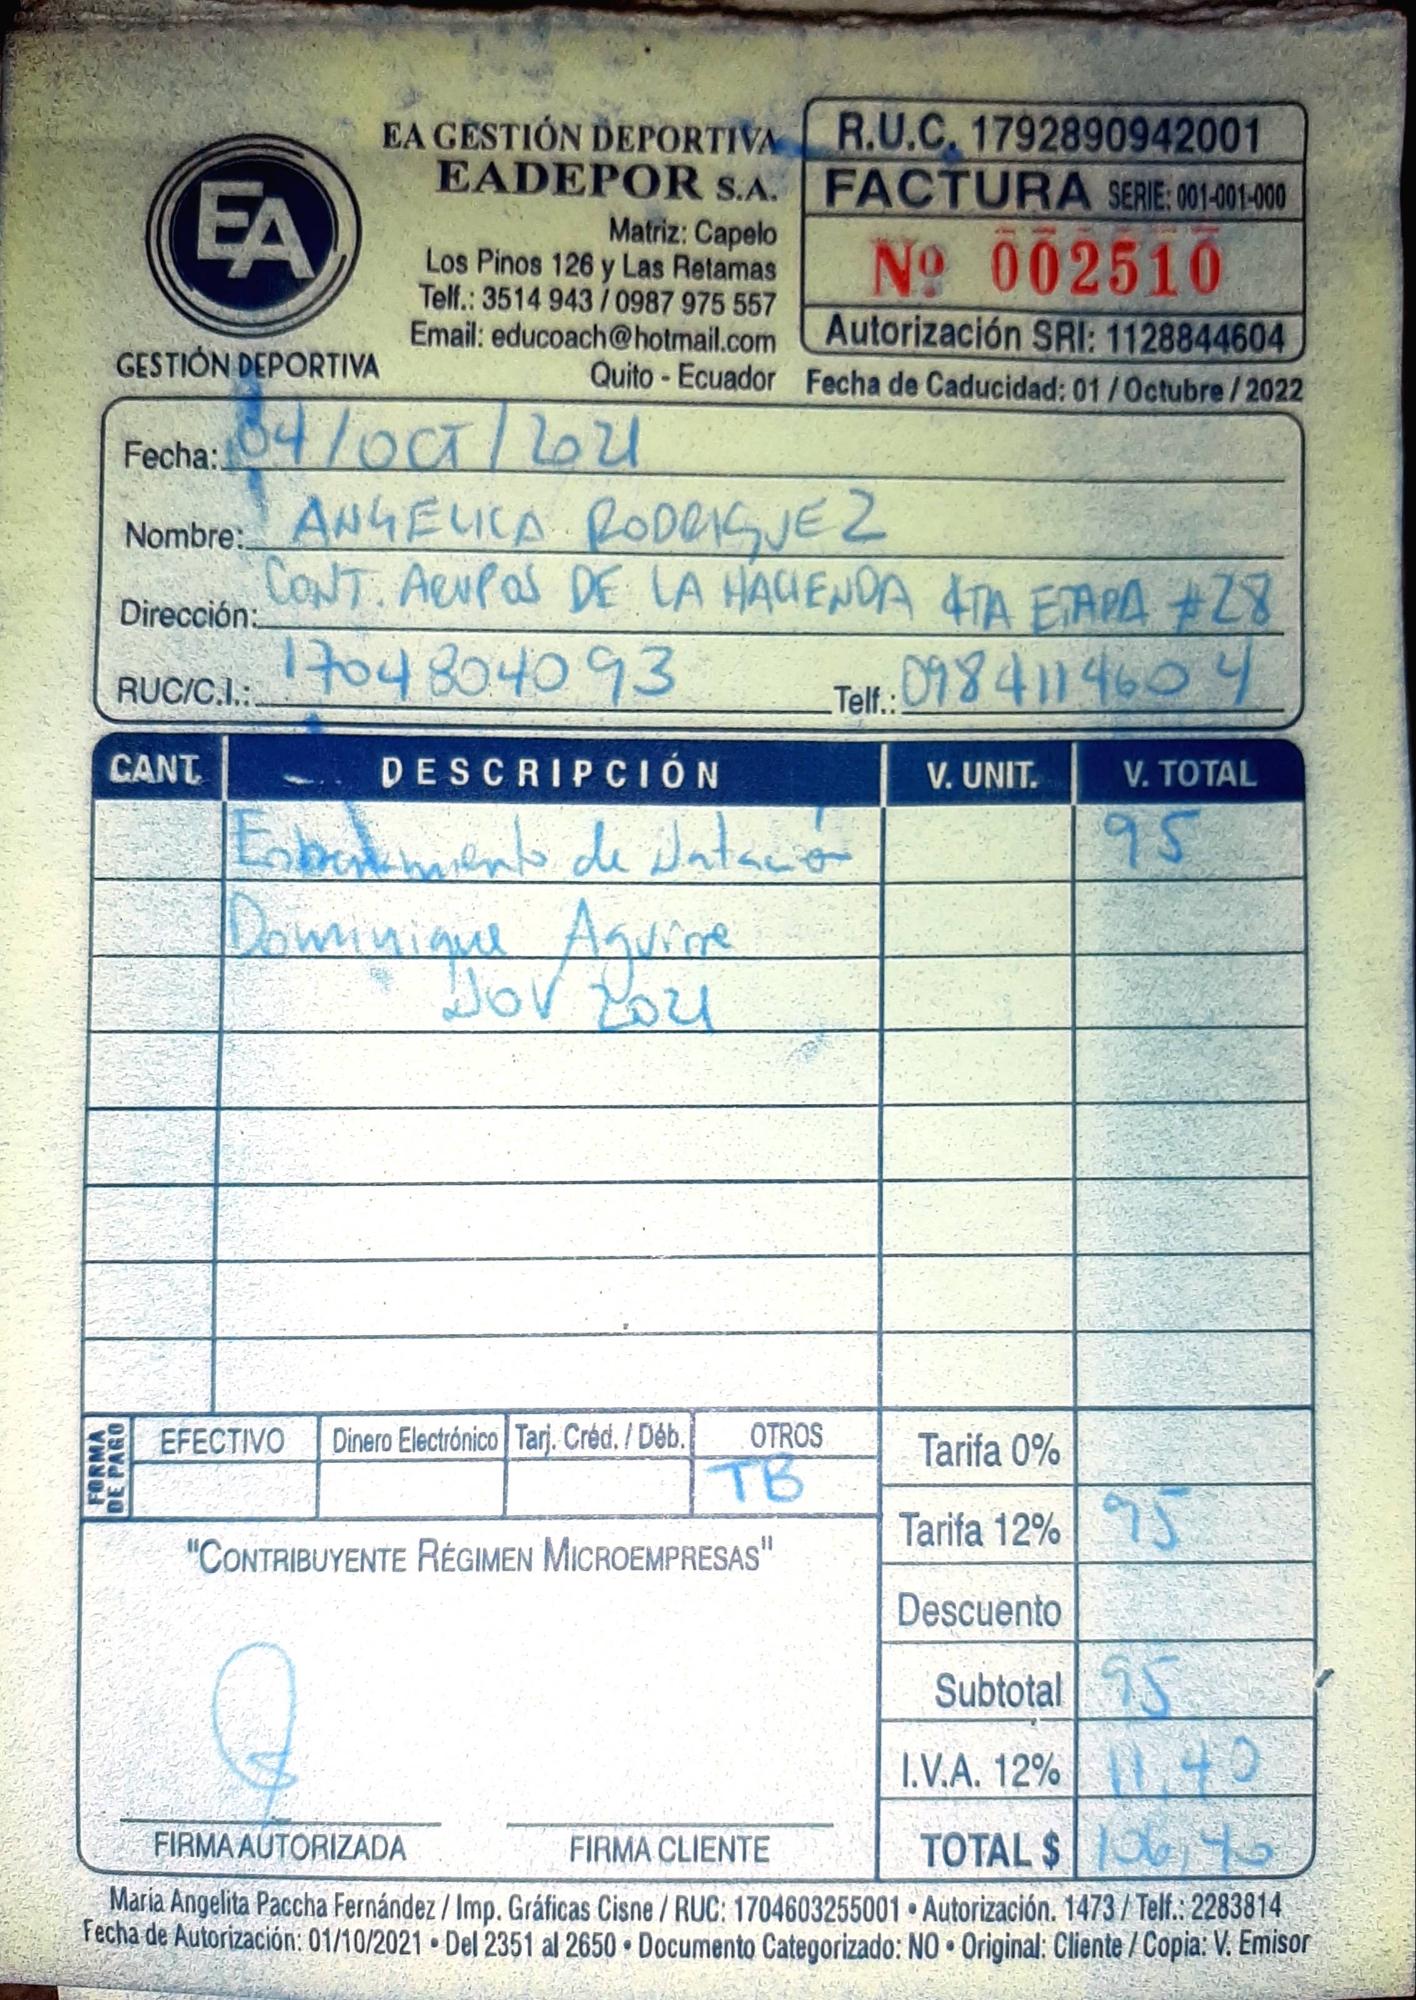 EA
GESTIÓN DEPORTIVA
EA GESTIÓN DEPORTIVA
EADEPOR S.A.
Matriz: Capelo
Los Pinos 126 y Las Retamas
Telf.: 3514 943 / 0987 975 557
Email: educoach@hotmail.com
Quito - Ecuador
R.U.C. 1792890942001
FACTURA SERIE: 001-001-000
Nº 002510
Autorización SRI: 1128844604
Fecha de Caducidad: 01 / Octubre / 2022
Fecha: 04/OCT/2021
Nombre: ANGELICA RODRIGUEZ
Dirección: CONT. DE LA HACIENDA 4TA ETAPA #28
RUC/C.I.: 1704804093 Telf.: 0984114604
CANT. DESCRIPCIÓN V. UNIT. V. TOTAL
Entrenamiento de Natación 95
Dominique Aguirre
NOV 2021
FORMA DE PAGO
EFECTIVO Dinero Electrónico Tarj. Créd. / Déb. OTROS
TB
Tarifa 0%
Tarifa 12% 95
Descuento
Subtotal 95
I.V.A. 12% 11,40
TOTAL $ 106,40
"CONTRIBUYENTE RÉGIMEN MICROEMPRESAS"
FIRMA AUTORIZADA FIRMA CLIENTE
Maria Angelita Paccha Fernández / Imp. Gráficas Cisne / RUC: 1704603255001 • Autorización. 1473 / Telf.: 2283814
Fecha de Autorización: 01/10/2021 • Del 2351 al 2650 • Documento Categorizado: NO • Original: Cliente / Copia: V. Emisor